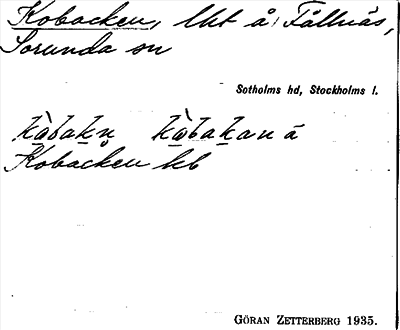 Kobacken, lht å Fållnäs,
Sorunda sn
Sotholms hd, Stockholms l.
kòbakn̥ kòbakana
Kobacken hb
GÖRAN ZETTERBERG 1935.